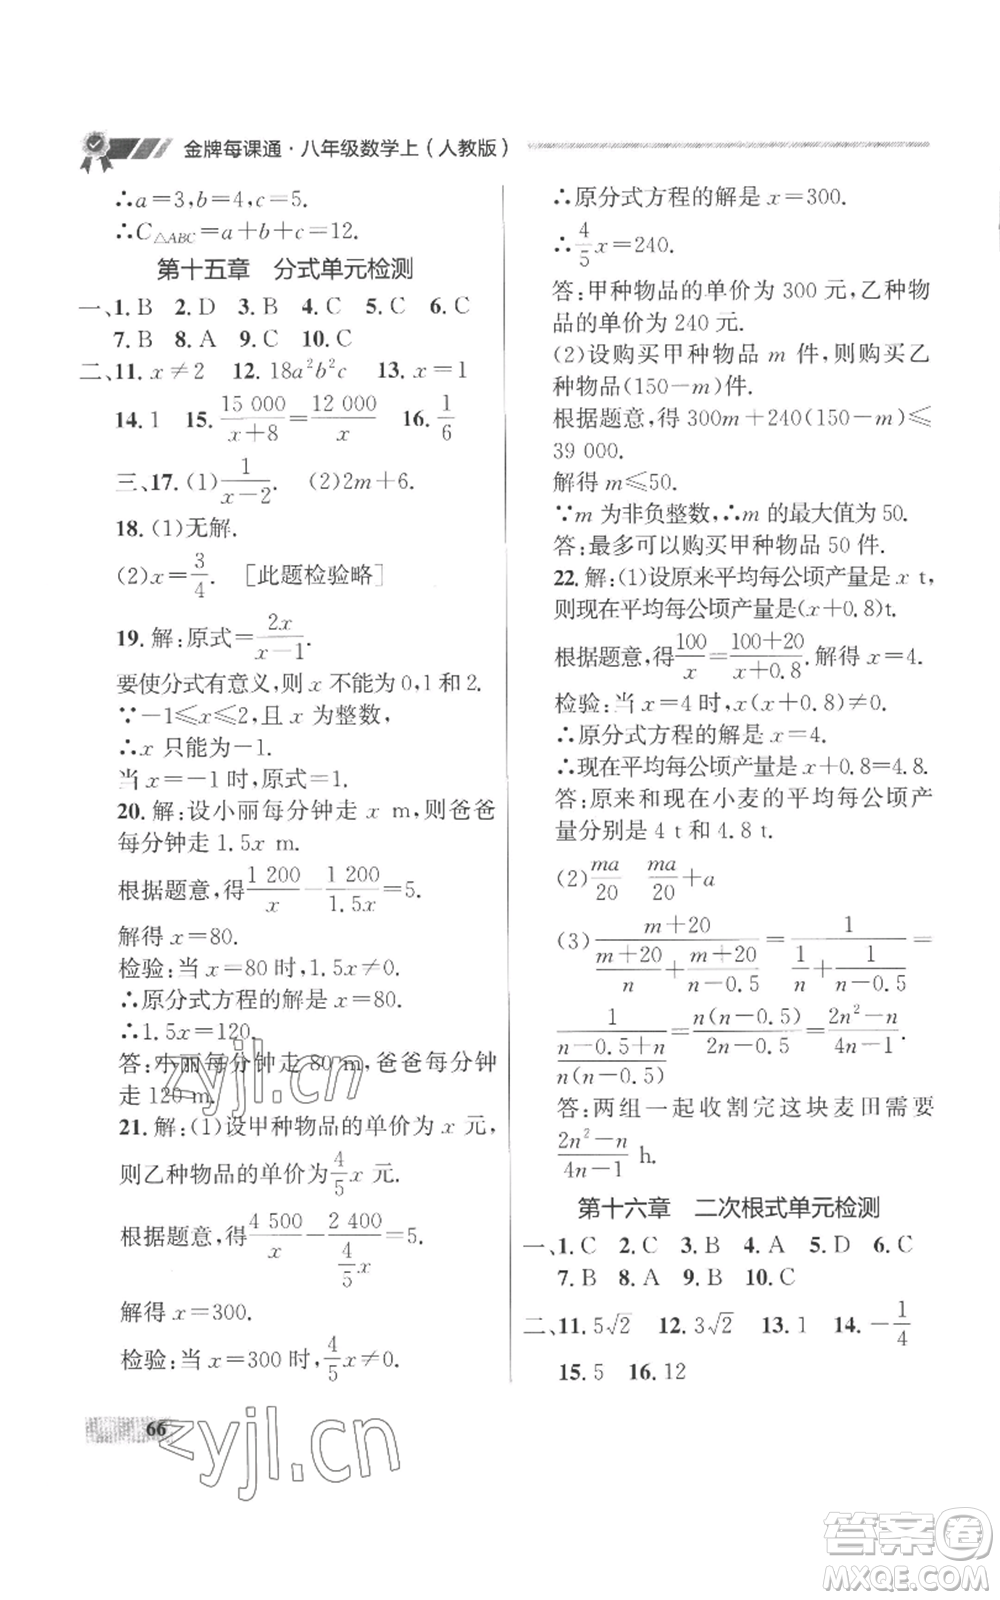 金牌每课通·八年级数学上(人教版)
∴a=3,b=4,c=5.
∴C△ABC=a+b+c=12.
第十五章 分式单元检测
一、1. B 2. D 3. B 4. C 5. C 6. C
7. B 8. A 9. C 10. C
二、11. x≠2 12. 18a²b²c 13. x=1
14. 1 15. 15 000/(x+8)=12 000/x 16. 1/6
三、17. (1)1/(x-2). (2)2m+6.
18. (1)无解.
(2)x=3/4. [此题检验略]
19. 解:原式=2x/(x-1).
要使分式有意义,则 x 不能为 0,1 和 2.
∵-1≤x≤2,且 x 为整数,
∴x 只能为-1.
当 x=-1 时,原式=1.
20. 解:设小丽每分钟走 x m,则爸爸
每分钟走 1.5x m.
根据题意,得1 200/x-1 200/1.5x=5.
解得 x=80.
检验:当 x=80 时,1.5x≠0.
∴原分式方程的解是 x=80.
∴1.5x=120.
答:小丽每分钟走 80 m,爸爸每分钟
走 120 m.
21. 解:(1)设甲种物品的单价为 x 元,
则乙种物品的单价为4/5x 元.
根据题意,得4 500/x-2 400/(4/5x)=5.
解得 x=300.
检验:当 x=300 时,4/5x≠0.
∴原分式方程的解是 x=300.
∴4/5x=240.
答:甲种物品的单价为 300 元,乙种物
品的单价为 240 元.
(2)设购买甲种物品 m 件,则购买乙
种物品(150-m)件.
根据题意,得 300m+240(150-m)≤
39 000.
解得 m≤50.
∵m 为非负整数,∴m 的最大值为 50.
答:最多可以购买甲种物品 50 件.
22. 解:(1)设原来平均每公顷产量是 x t,
则现在平均每公顷产量是(x+0.8)t.
根据题意,得100/x=(100+20)/(x+0.8).解得 x=4.
检验:当 x=4 时,x(x+0.8)≠0.
∴原分式方程的解是 x=4.
∴现在平均每公顷产量是 x+0.8=4.8.
答:原来和现在小麦的平均每公顷产
量分别是 4 t 和 4.8 t.
(2)ma/20 ma/20+a
(3)(m+20)/((m+20)/n+(m+20)/(n-0.5))=1/(1/n+1/(n-0.5))=
1/((n-0.5+n)/(n(n-0.5)))=n(n-0.5)/(2n-0.5)=(2n²-n)/(4n-1).
答:两组一起收割完这块麦田需要
(2n²-n)/(4n-1) h.
第十六章 二次根式单元检测
一、1. C 2. C 3. B 4. A 5. D 6. C
7. B 8. A 9. B 10. C
二、11. 5√2 12. 3√2 13. 1 14. -1/4
15. 5 16. 12
66
zyjl.cn
zyjl.cn
答案圈
MXQE.COM